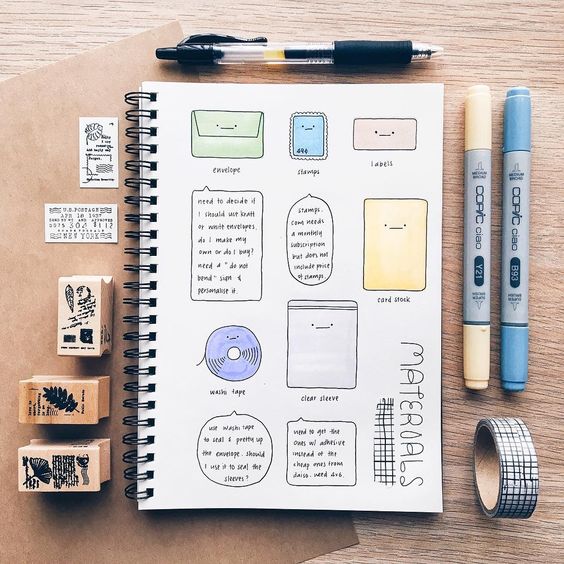 envelope
stamps
labels
49¢
need to decide if
I should use kraft
or white envelopes.
do I make my
own or do I buy?
need a "do not
bend" sign &
personalise it.
stamps.
com needs
a monthly
subscription
but does not
include price
of stamps.
card stock
washi tape
clear sleeve
use washi tape
to seal & pretty up
the envelope. should
I use it to seal the
sleeves?
need to get the
ones w/ adhesive
instead of the
cheap ones from
daiso. need 4x6.
MATERIALS
U.S. POSTAGE
APR 18 1937
NEW YORK
MEDIUM
BROAD
COPIC
ciao
Y21
SUPER
BRUSH
MEDIUM
BROAD
COPIC
ciao
B93
SUPER
BRUSH